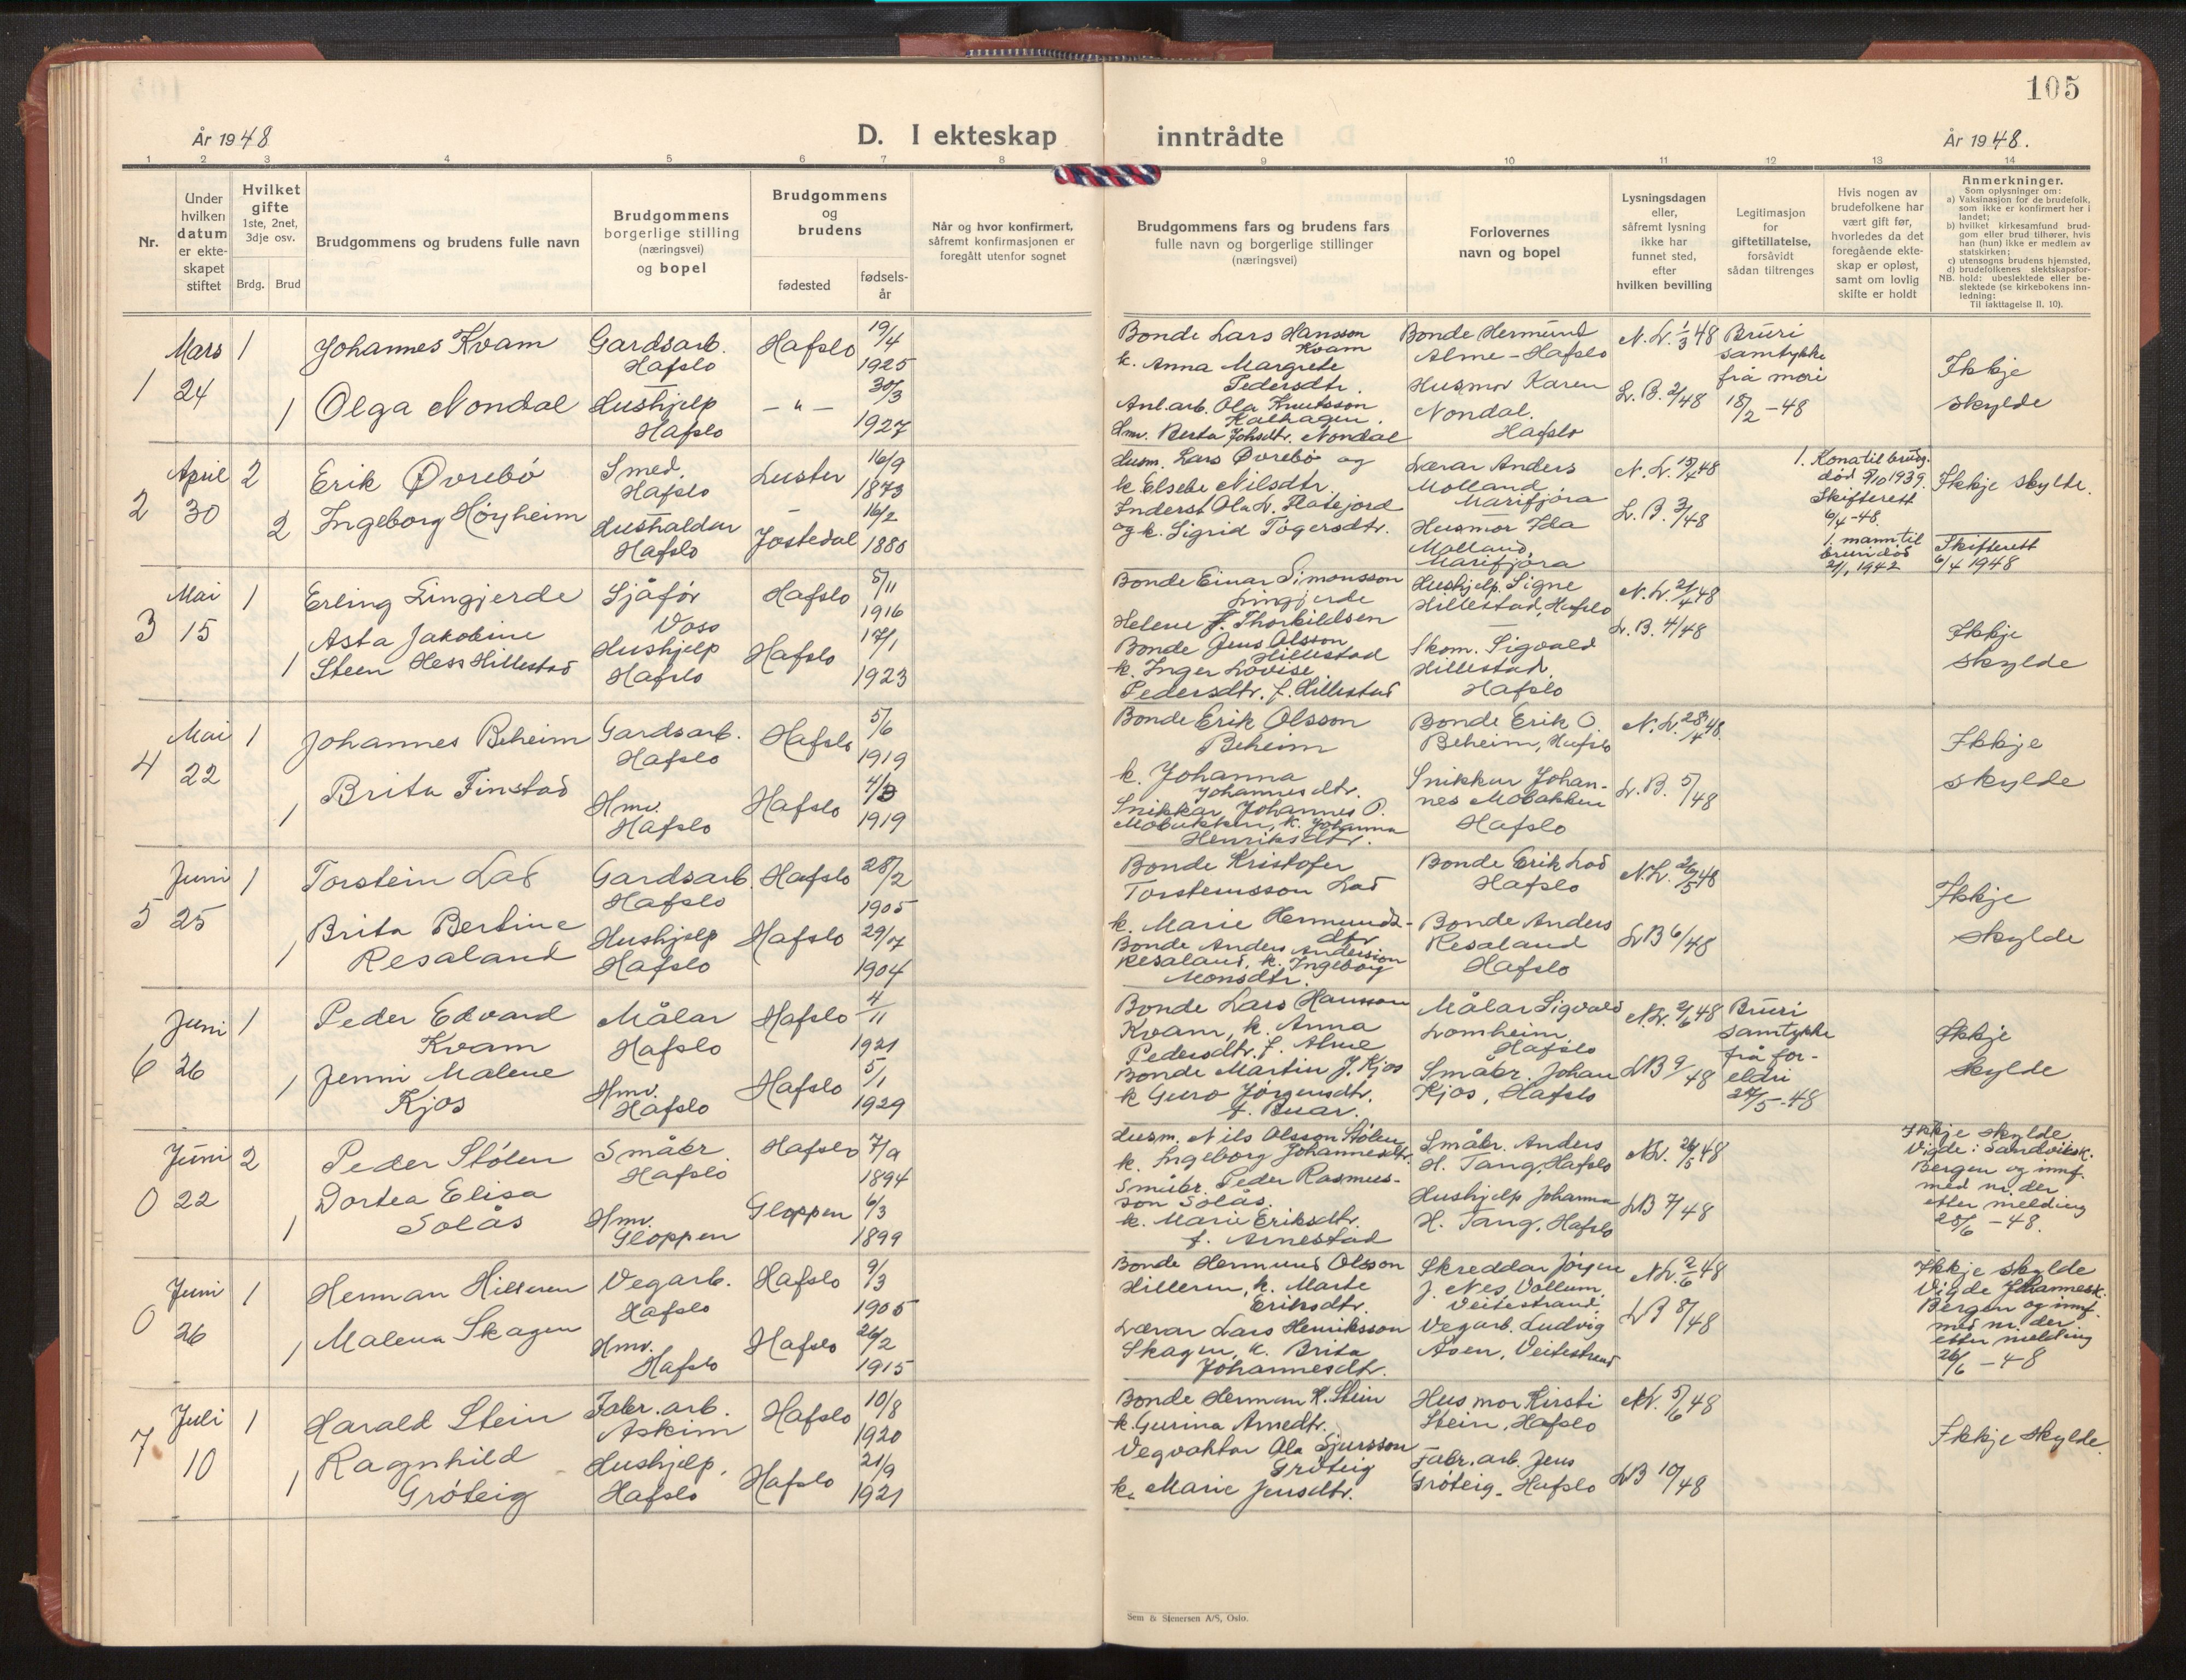 105
År 1948
D. I ekteskap inntrådte
År 1948.
1 2 3 4 5 6 7 8 9 10 11 12 13 14
Nr.
Under
hvilken
datum
er ekte-
skapet
stiftet
Hvilket
gifte
1ste, 2net,
3dje osv.
Brdg. Brud
Brudgommens og brudens fulle navn
Brudgommens
borgerlige stilling
(næringsvei)
og bopel
Brudgommens
og
brudens
fødested
fødsels-
år
Når og hvor konfirmert,
såfremt konfirmasjonen er
foregått utenfor sognet
Brudgommens fars og brudens fars
fulle navn og borgerlige stillinger
(næringsvei)
Forlovernes
navn og bopel
Lysningsdagen
eller,
såfremt lysning
ikke har
funnet sted,
efter
hvilken bevilling
Legitimasjon
for
giftetillatelse,
forsåvidt
sådan tiltrenges
Hvis nogen av
brudefolkene har
vært gift før,
hvorledes da det
foregående ekte-
skap er opløst,
samt om lovlig
skifte er holdt
Anmerkninger.
Som oplysninger om:
a) Vaksinasjon for de brudefolk,
som ikke er konfirmert her i
landet;
b) hvilket kirkesamfund brud-
gom eller brud tilhører, hvis
han (hun) ikke er medlem av
statskirken;
c) utensogns brudens hjemsted,
d) brudefolkenes slektskapsfor-
NB. hold: ubeslektede eller be-
slektede (se kirkebokens inn-
ledning:
Til iakttagelse II. 10).
1
Mars
24
1
Johannes Kvam
Gardsarb.
Hafslo
Hafslo
19/4
1925
1
Olga Nondal
Hushjelp
Hafslo
— " —
30/3
1927
Bonde Lars Hansson
Kvam
k. Anna Margrete
Pedersdtr.
Anl.arb. Ola Knutsson
Kalhagen.
Hmv. Berta Johsdtr. Nondal
Bonde Hermund
Alme – Hafslo
Husmor Karen
Nondal.
Hafslo
N. L. 1/3 48
L. B. 2/48
Bruri
samtykke
frå mori
18/2 – 48
Ikkje
skylde
2
April
30
2
Erik Øvrebö
Smed,
Hafslo
Luster
16/9
1873
2
Ingeborg Höyheim
Hushaldar
Hafslo
Jostedal
16/2
1880
Husm. Lars Øvrebö og
k. Elsebe Nilsdtr.
Inderst Ola L. Flatejord
og k. Sigrid Tögersdtr.
Lærar Anders
Molland,
Marifjöra
Husmor Ida
Molland,
Marifjöra
N. L. 15/4 48
L. B. 3/48
1. Kona til brudg.
död 5/10 1939.
Skifterett
6/4 –48.
1. mann til
bruri död
21/1 1942
Ikkje skylde.
Skifterett
6/4 1948
3
Mai
15
1
Erling Lingjerde
Sjåför
Voss
Hafslo
5/11
1916
1
Asta Jakobine
Steen Hess Hillestad
Hushjelp
Hafslo
Hafslo
17/1
1923
Bonde Einar Simonsson
Lingjerde
Helene J. Thorkildsen
Bonde Jens Olsson
Hillestad
k. Inger Lovise
Pedersdtr. f. Hillestad
Hushjelp Signe
Hillestad, Hafslo
Skom. Sigvald
Hillestad,
Hafslo
N. L. 21/4 48
L. B. 4/48
Ikkje
skylde
4
Mai
22
1
Johannes Beheim
Gardsarb.
Hafslo
Hafslo
5/6
1919
1
Brita Finstad
Hmv.
Hafslo
Hafslo
4/3
1919
Bonde Erik Olsson
Beheim
k. Johanna
Johannesdtr.
Snikkar Johannes O.
Mobakken, k. Johanna
Henriksdtr.
Bonde Erik O.
Beheim, Hafslo
Snikkar Johan-
nes Mobakken
Hafslo
N. L. 28/4 48
L. B. 5/48
Ikkje
skylde
5
Juni
25
1
Torstein Lad
Gardsarb.
Hafslo
Hafslo
28/2
1905
1
Brita Bertine
Resaland
Hushjelp
Hafslo
Hafslo
29/7
1904
Bonde Kristofer
Torsteinsson Lad
k. Marie Hermunds-
dtr
Bonde Anders Andersson
Resaland, k. Ingeborg
Monsdtr.
Bonde Erik Lad
Hafslo
Bonde Anders
Resaland
Hafslo
N. L. 26/5 48
LB 6/48
Ikkje
skylde
6
Juni
26
1
Peder Edvard
Kvam
Målar
Hafslo
Hafslo
4/11
1921
1
Jenni Malene
Kjos
Hmv.
Hafslo
Hafslo
5/1
1929
Bonde Lars Hansson
Kvam, k. Anna
Pedersdtr. f. Alme
Bonde Martin J. Kjos
k Guro Jörgensdtr.
f. Buar.
Målar Sigvald
Lomheim
Hafslo
Småbr. Johan
Kjos, Hafslo
N. L. 2/6 48
LB 9/48
Bruri
samtykke
frå for-
eldri
24/5 -48
Ikkje
skylde
0
Juni
22
2
Peder Stölen
Småbr.
Hafslo
Hafslo
7/9
1894
1
Dortea Elisa
Solås
Hmv.
Gloppen
Gloppen
6/3
1899
Husm. Nils Olsson Stölen
k. Ingeborg Johannesdtr.
Småbr. Peder Rasmus-
son Solås.
k. Marie Eriksdtr.
f. Arnestad
Småbr. Anders
H. Tang, Hafslo
Hushjelp Johanna
H. Tang, Hafslo
NL. 26/5 48
LB 7/48
Ikkje skylde
Vigde i Sandviksk.
Bergen og innf.
med nr. der
etter melding
28/6 – 48.
0
Juni
26
1
Herman Hilleren
Vegarb.
Hafslo
Hafslo
9/3
1905
1
Malena Skagen
Hmv.
Hafslo
Hafslo
26/2
1915
Bonde Hermund Olsson
Hilleren, k. Marte
Eriksdtr.
Lærar Lars Henriksson
Skagen, k. Brita
Johannesdtr.
Skreddar Jörgen
J. Nes, Vollum,
Veitestrand.
Vegarb. Ludvig
Åsen, Veitestrand
N L. 2/6 48
LB 8/48
Ikkje skylde
Vigde Johannesk.
Bergen og innf.
med nr. der
etter melding
26/6 – 48
7
Juli
10
1
Harald Stein
Fabr. arb.
Askim
Hafslo
10/8
1920
1
Ragnhild
Gröteig
Hushjelp,
Hafslo
Hafslo
21/9
1921
Bonde Herman K. Stein
k. Gurina Arnedtr.
Vegvaktar Ola Sjursson
Gröteig
k. Marie Jensdtr.
Husmor Kirsti
Stein, Hafslo
Fabr. arb. Jens
Gröteig. Hafslo
NL. 5/6 48
LB 10/48
Ikkje skylde.
Sem & Stenersen A/S, Oslo.